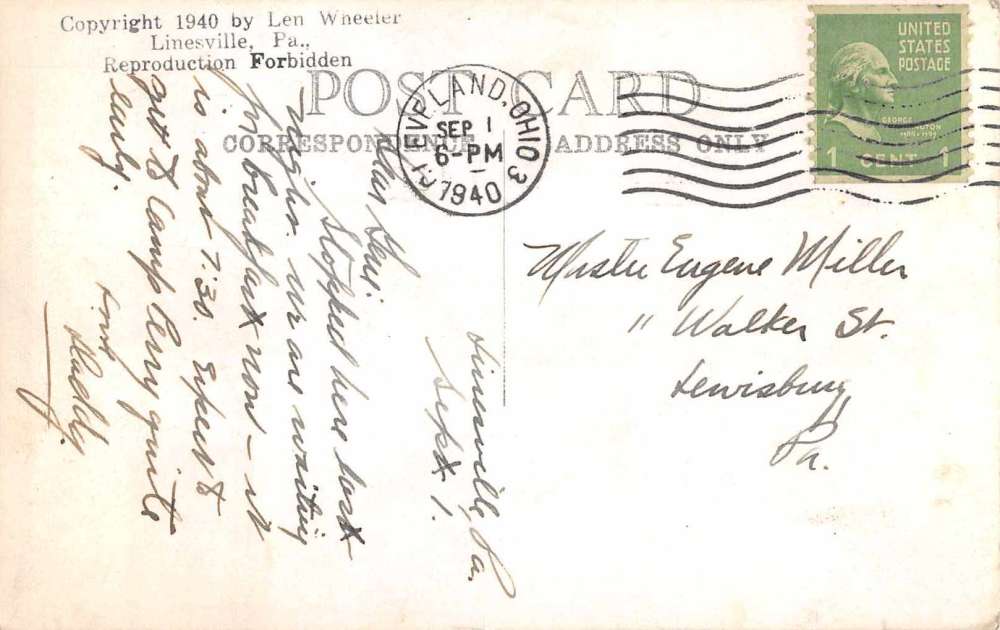 Copyright 1940 by Len Wheeler
Linesville, Pa.,
Reproduction Forbidden
POST CARD
CORRESPONDENCE
ADDRESS ONLY
CLEVELAND, OHIO 3
SEP 1
6-PM
1940
UNITED
STATES
POSTAGE
GEORGE
WASHINGTON
1789-1797
1 CENT 1
Linesville, Pa.
Sept 1.
Dear Gene:
Stopped here last
night. We are waiting
for breakfast now - it
is about 7:30. Expect to
get to Camp Perry quite
early.
Love
Daddy.
Mister Eugene Miller
11 Walker St.
Lewisburg
Pa.